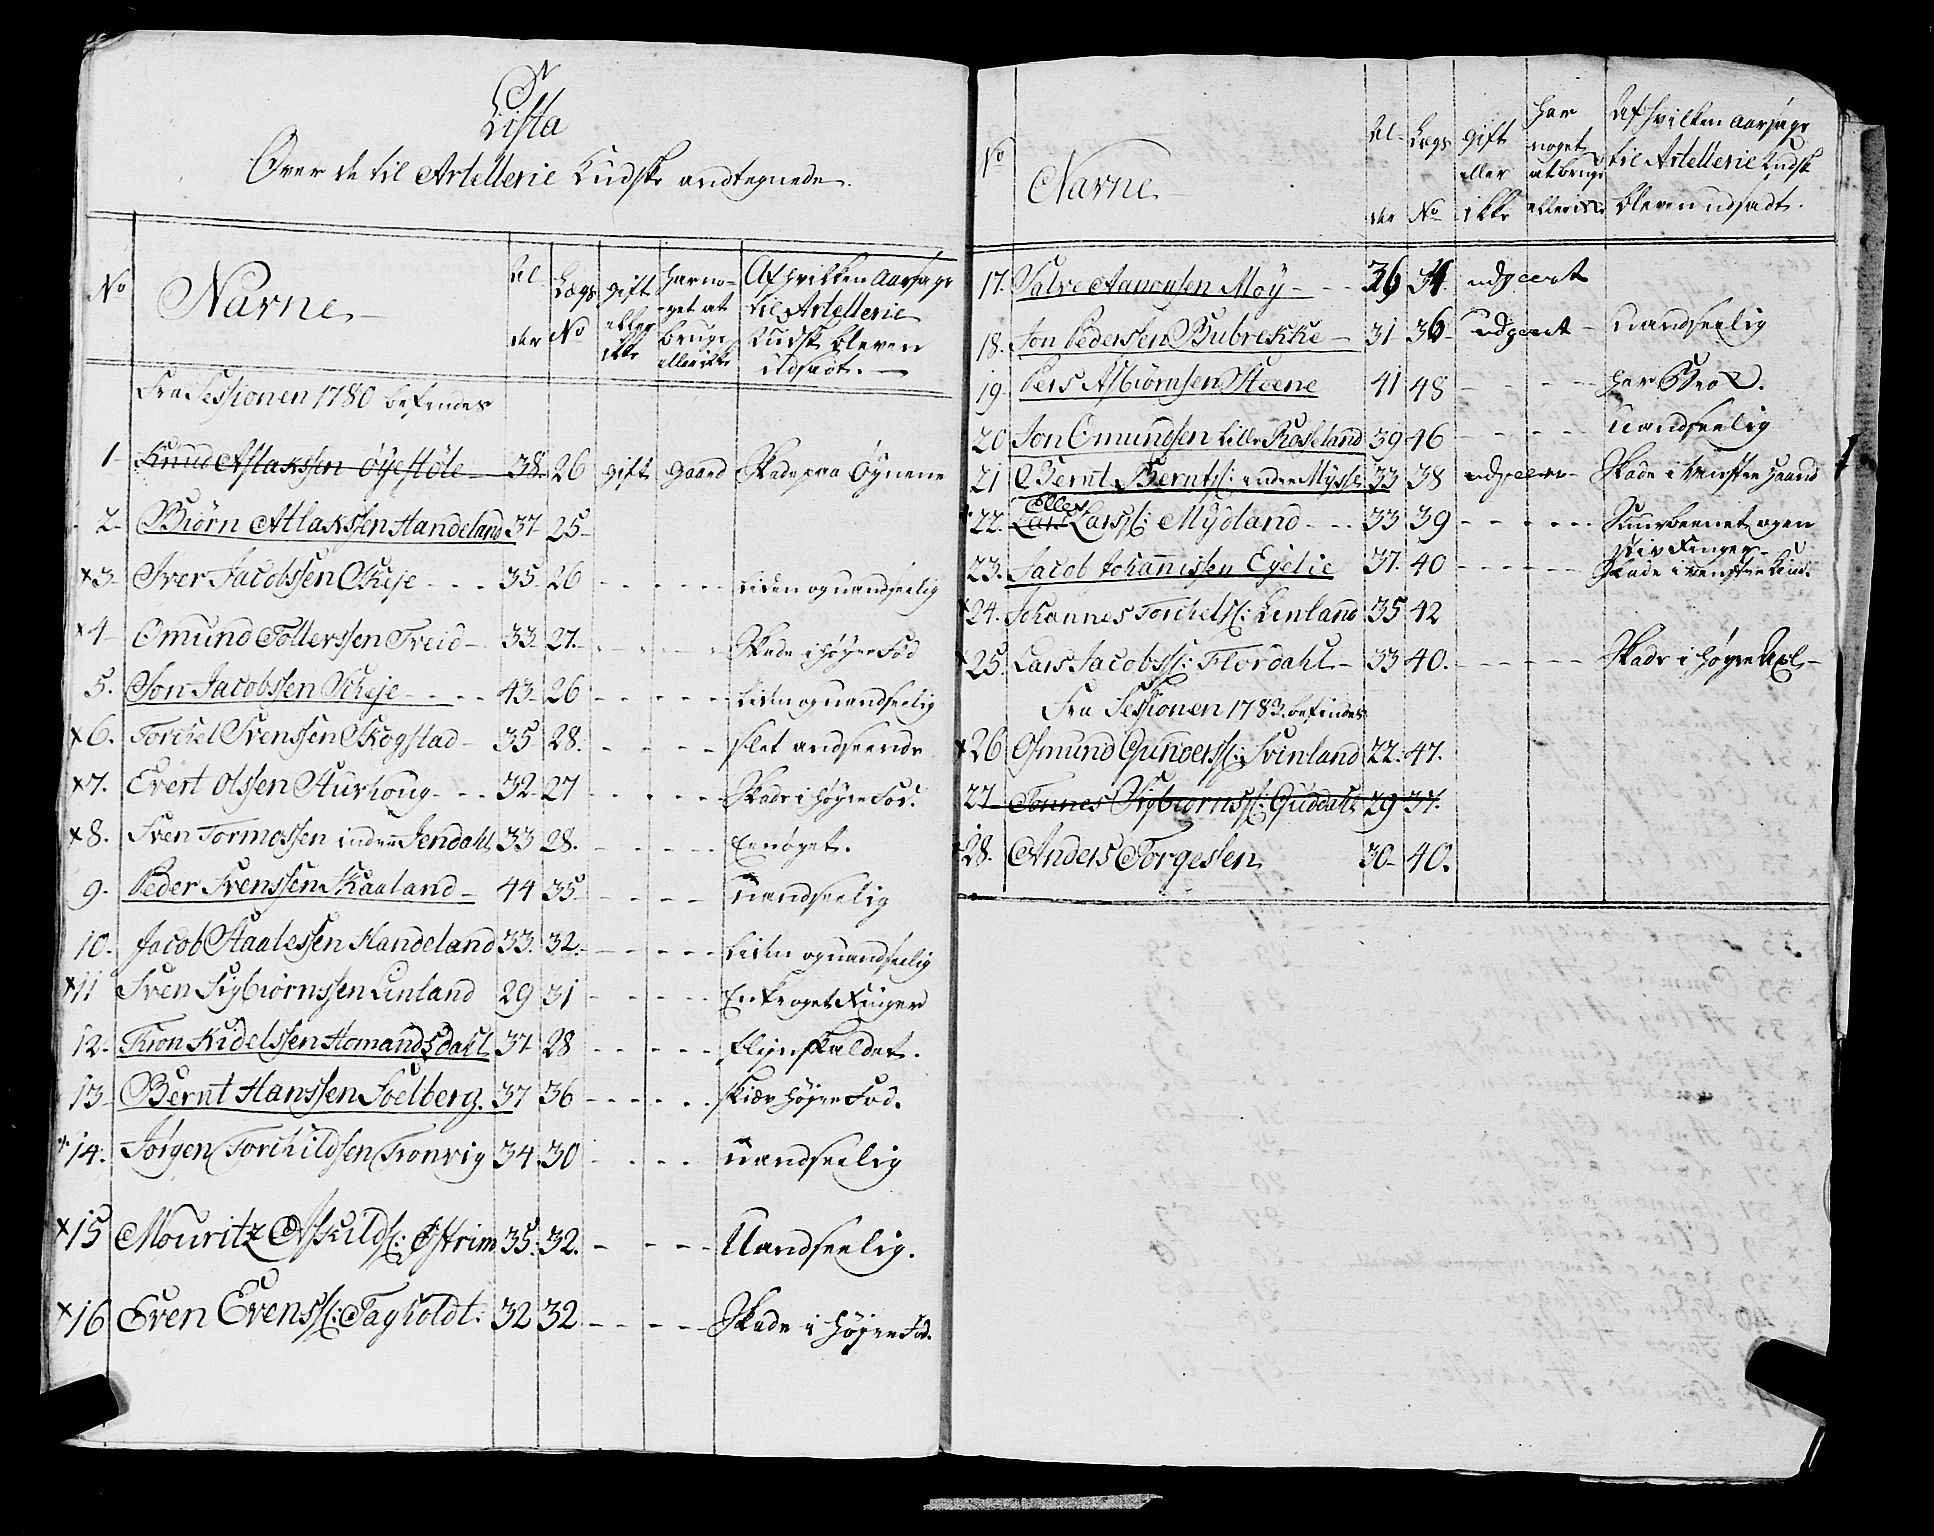 Lista
Over de til Artellerie Kudske andtegnede.
No Navne Al-der Lægs No gift eller ikke har noget at bruge eller ikke Af hvilken Aarsage til Artellerie Kudsk bleven udsadt.
Fra Sessionen 1780 befindes
1 Knud Aslakssen Øyestøle 38 26 gift gaard Skade paa Øynene
2 Biørn Atlakssen Handeland 37 25
x 3 Iver Jacobssen Skeje 35 26 - - - - liden og uandseelig
x 4 Omund Tollerssen Treid 33 27 - - - - Skade i høyre Fod
5. Jon Jacobssen Skeje 43 26 - - - - liden og uandseelig
x 6. Torchel Svenssen Skogstad 35 28. - - - - slet andseende
x 7. Evert Olssen Sturhoug 32 27 - - - - Skade i høyre Fod.
x 8. Sven Tormossen indre Jendahl 33 28. - - - - Eenøyet.
9. Peder Svenssen Skaaland 44 35 - - - - uandseelig
10. Jacob Staalessen Handeland 33. 32. - - - - liden og uandseelig
x 11 Sven Sigbiørnssen Linland 29 31 - - - - En kroget Finger
12. Tron Kidelssen Homandsdahl 37 28 - - - -
13 Bernt Hanssen Soelberg. 37 36 - - - - skiev høyre Fod.
14. Jørgen Torchildssen Tronvig 34 30 - - - - uandseelig
x 15 Mouritz Askilds: Østrim 35. 32. - - - - Uandseelig.
x 16 Even Evenss: Tagholdt: 32 32 - - - - Skade i høyre Fod.
No Navne Al-der Lægs No gift eller ikke har noget at bruge eller ikke Af hvilken Aarsage til Artellerie Kudsk bleven udsadt.
17. Salve Aanonsen Moy 36 34 udgeert
18. Jon Pederssen Bubrekke 31 36 udgeert - uandseelig
19. Pers Asbiørnsen Steene 41 48 - - - - har Brok.
20 Jon Omundsen lille Roseland 39 46 - - - - uandseelig
21 Bernt Bernts: indre Mysse 33 38 udgeert - Skade i venstre Haand
22. Lars Eller Larss: Mydland 33 39 - - - - beenet og en
stiv Finger
23. Jacob Johannissen Egelie 37. 40 - - - - Skade i venstre
x 24. Johannes Torchels: Linland 35 42
x 25. Lars Jacobss: Flordahl 33 40. - - - - Skade i høyre Axl -
Fra Sessionen 1783 befindes
x 26 Osmund Gunders: Svinland 22. 47.
27 Tønnes Sigbiørnss: Guddahl 29 37.
28. Anders Torgessen 30 40.